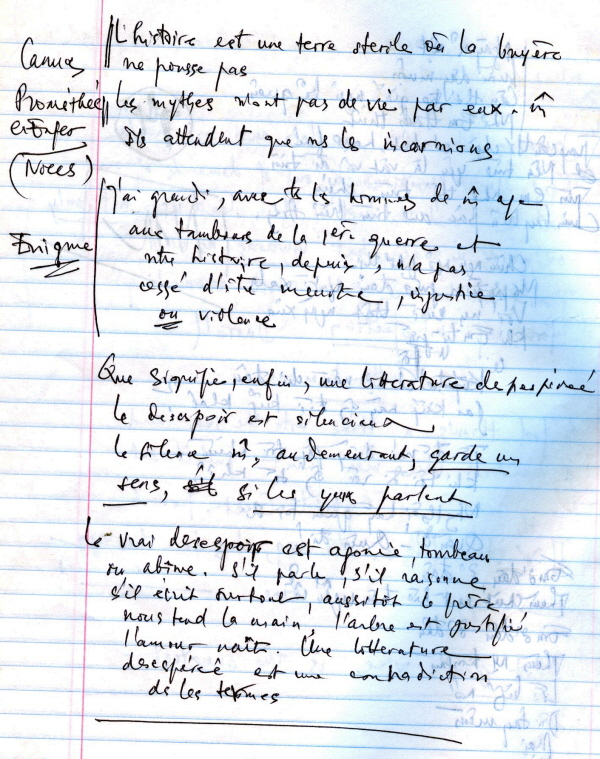 Camus
Prométhée
enfer
(Noces)
L'histoire est une terre sterile où la bruyère
ne pousse pas
Les mythes n'ont pas de vie par eux-m̂
Ils attendent que ns les incarnions
Enigme
J'ai grandi, avec ts les hommes de m̂ age
aux tambours de la 1ère guerre et
ntre histoire, depuis, n'a pas
cessé d'être meurtre, injustice
ou violence
Que signifie, enfin, une litterature desespérée
le desespoir est silencieux
le silence m̂, au demeurant, garde un
sens, si les yeux parlent
Le vrai desespoir est agonie, tombeau
ou abîme. S'il parle, s'il raisonne
s'il écrit surtout, aussitôt le frère
nous tend la main, l'arbre est justifié
l'amour naît. Une litterature
desespérée est une contradiction
ds les termes